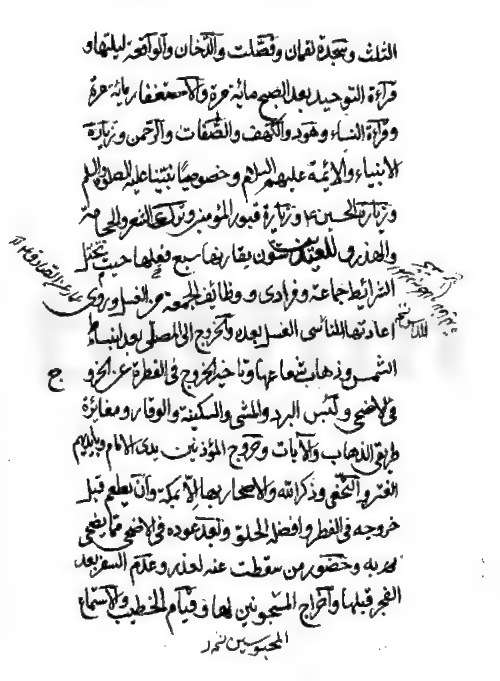 الثلث وسجدة لقمان وفصّلت والدّخان والواقعة ليلتها و
قراءة التوحيد بعد الصبح مائة مرة والاستغفار مائة مرة
وقراءة النساء وهود والكهف والصّفات والرحمن وزيارة
الانبياء والائمة عليهم السلام وخصوصاً نبيّنا عليه الصلوة والسلم
وزيارة الحسين ع وزيارة قبور المؤمنين وترك الشعر والحجامة
والهذر وللعيدين سنن يقارنها سبع فعلها حيث تختل
الشرائط جماعة وفرادى ووظائف الجمعة من الغسل وروى
اعادتها الناسى الغسل بعده والخروج الى المصلى بعد انبساط
الشمس وذهاب شعاعها وتأخير الخروج فى الفطرة عن الخروج
فى الاضحى ولبس البرد والمشى والسكينة والوقار ومغائرة
طريقى الذهاب والاياب وخروج المؤذنين بين يدى الامام وبايديهم
العنز والتحفى وذكر الله والاصحار بها الّا بمكة وأن يطعم قبل
خروجه فى الفطر وافضله الحلو وبعد عوده فى الاضحى ممّا يضحى
به وحضور من سقطت عنه لعذر وعدم السفر بعد
الفجر قبلها واخراج المسجونين لها وقيام الخطيب والاستماع
المحبوسين